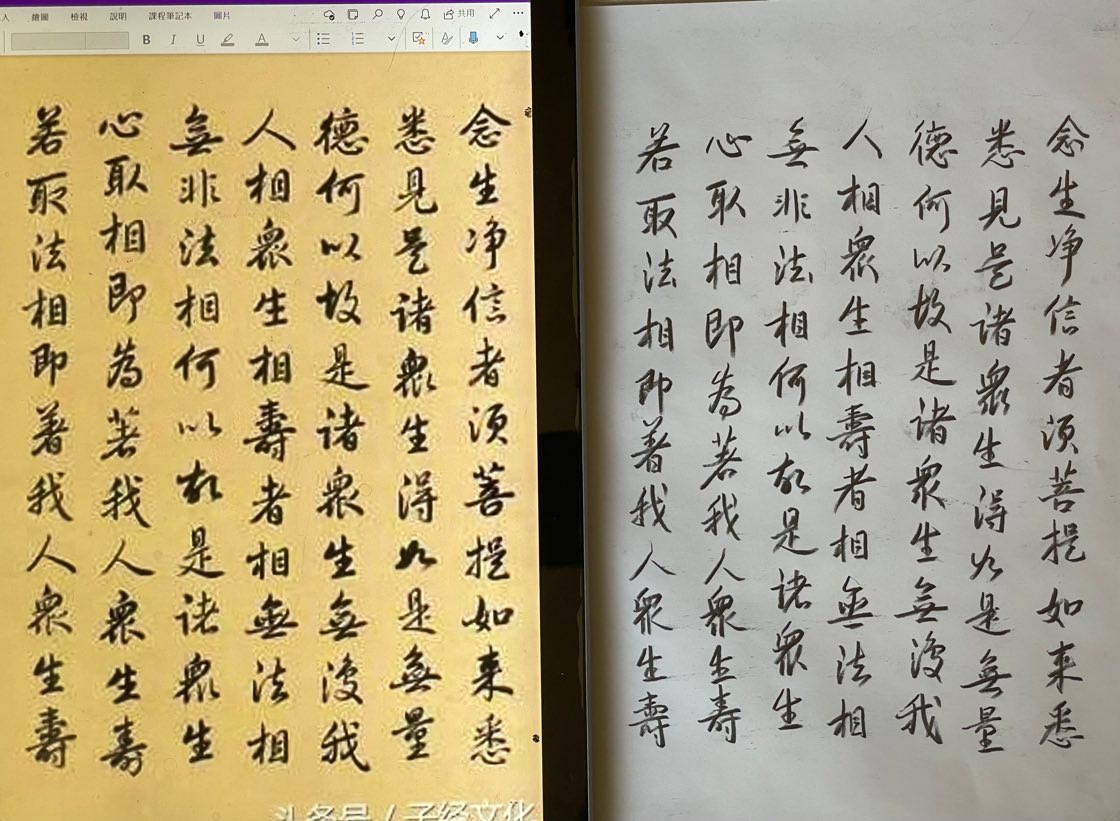 人 繪圖 檢視 說明 課程筆記本 圖片 共用
B I U A
念生净信者須菩提如来悉
悉見是諸衆生得如是無量
德何以故是諸衆生無復我
人相衆生相壽者相無法相
無非法相何以故是諸衆生
心取相即為著我人衆生壽
若取法相即著我人衆生壽
头条号 / 子经文化
念生净信者須菩提如来悉
悉見是諸衆生得如是無量
德何以故是諸衆生無復我
人相衆生相壽者相無法相
無非法相何以故是諸衆生
心取相即為著我人衆生壽
若取法相即著我人衆生壽